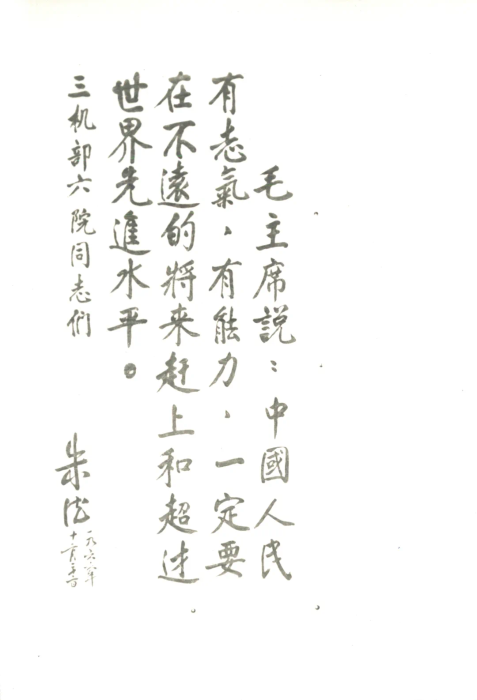 毛主席説：中國人民
有志氣，有能力，一定要
在不遠的將来赶上和超过
世界先進水平。
三机部六院同志們
朱德
一九六